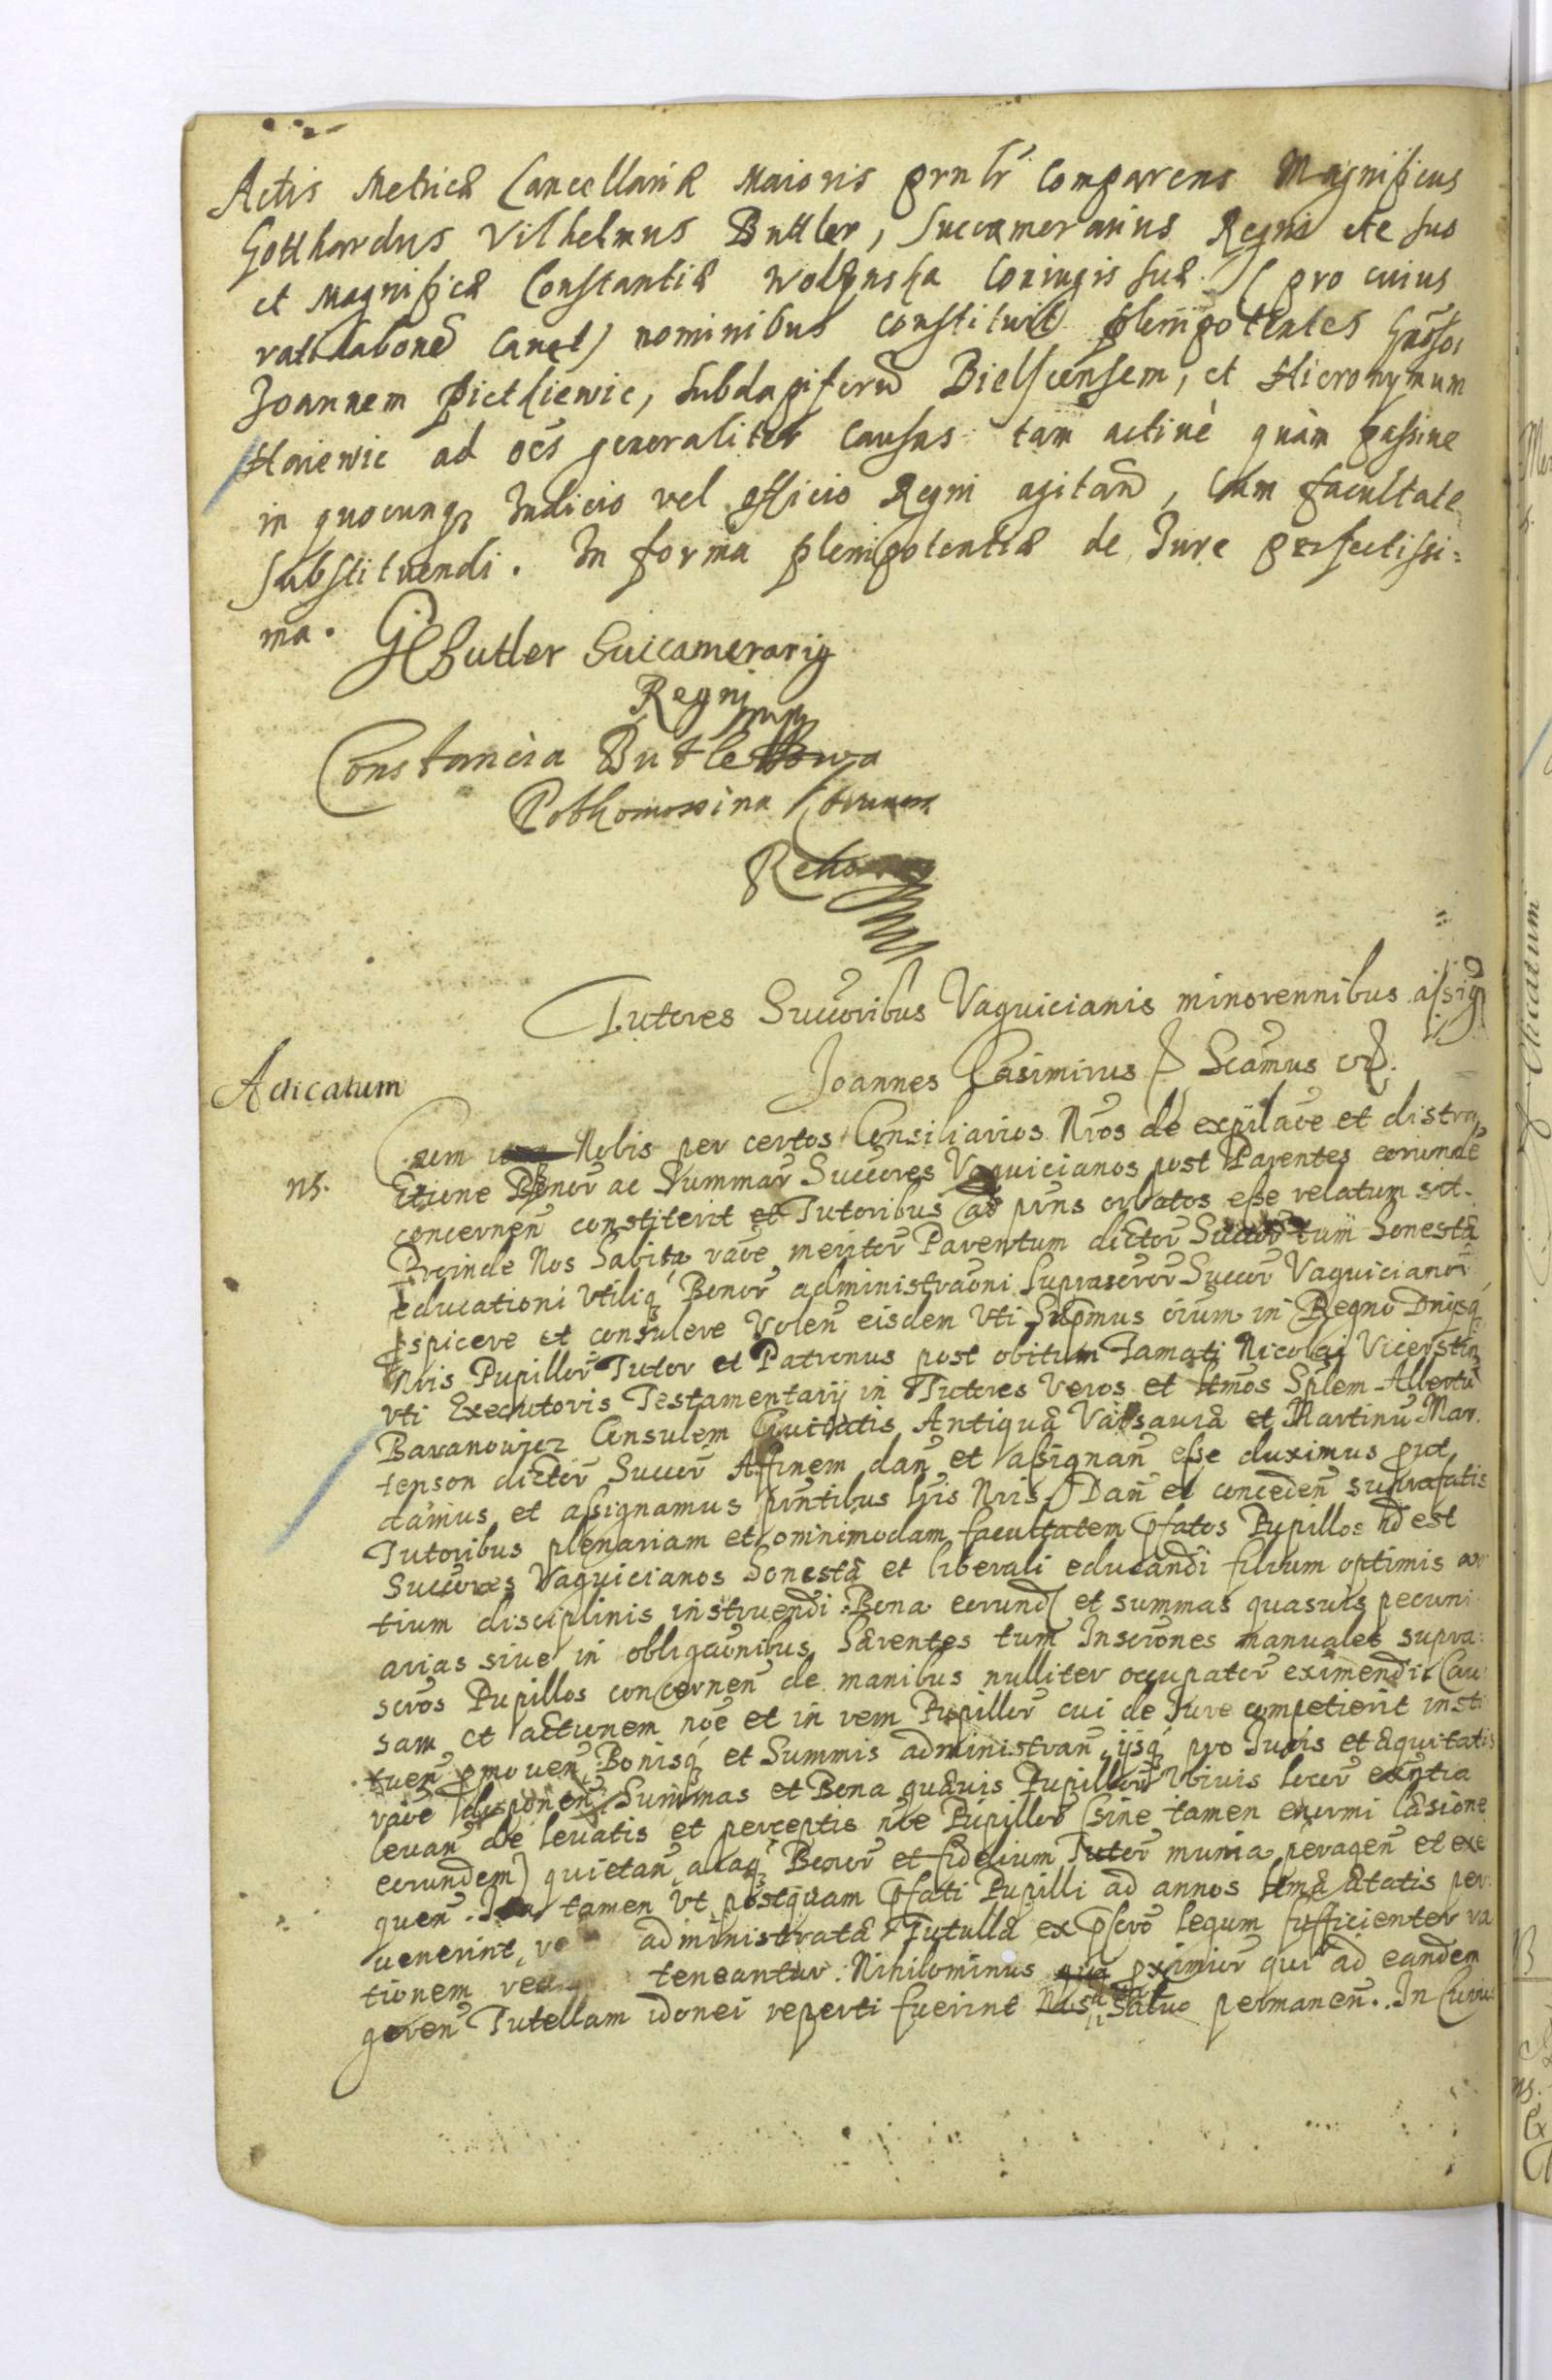 Actis Metricæ Cancellariæ Maioris prnlr Comparens Magnificus
Gotthardus Vilhelmus Buttler, Succamerarius Regni etc suo
et Magnificæ Constantiæ Wodynska Coniugis suæ (pro cuius
ratihabone Cauet) nominibus constituit plenipotentes Gnosos
Joannem Pietkiewic, Subdapiferũ Bielscensem, et Hieronymum
Haiewic ad oẽs generaliter causas tam actiuè quàm passiue
in quocunq Iudicio vel officio Regni agitand, Cum facultate
substituendi. In forma plenipotentiæ de Iure perfectissi=
ma.
G Butler Succamerarig
Regni mp
Constancia Butlerowa
Pothomorzina Coronna
Tutores Succõribus Vaguicianis minorennibus assig
Joannes Casimirus Scamus
Acticatum
Cum Nobis per certos Consiliarios Nros de expilaõe et distra
ns.
ctione Bonor ac Summar Succores Vaguicianos post Parentes eorunde
concernen constiterit et Tutoribus ad prns orbatos esse relatum sit.
Proinde Nos habita raõe meritor Parentum dictor Succor tum honestæ
educationi vtiliq Bonor administraoni suprascror Succor Vaguicianor
pspicere et consulere Volen eisdem vti Supmus oium in Regno Dnijsq
Nris Pupillor Tutor et Patronus post obitum Famati Nicolai Vicerstin
vti Executoris Testamentarij in Tutores Veros et ltmos Splem Albertu
Baranowicz Consulem Ciuitatis Antiquæ Varsauiæ et Martinu Mar.
tenson dictor Succor Affinem dan et assignan esse duximus put
damus et assignamus prntibus lris Nris. Dan et conceden suprafatis
Tutoribus plenariam et omnimodam facultatem pfatos Pupillos id est
Succores Vaguicianos honestâ et liberali educandi filium optimis ar
tium disciplinis instruendi Bona eorund et summas quasuis pecuni
arias siue in obligaonibus hærentes tum Inscrones manuales supra:
scros Pupillos concernen de manibus nulliter occupator eximendi Cau
sam et actionem noe et in rem Pupillor cui de Iure competierit insti
tuen pmouen Bonisq et Summis administran, ijsq pro Iuris et æquitatis
raõe disponen Summas et Bona quæuis Pupillor Vbiuis locor exntia
leuan de leuatis et perceptis noe Pupillor (sine tamen enormi læsione
eorundem) quietan aliaq Bonor et fidelium Tutor munia peragen et exe
quen. Ita tamen vt postquam pfati Pupilli ad annos ltmæ ætatis per
uenerint, administratæ Tutullæ ex pscro legum sufficienter ra
tionem teneantur. Nihilominus pximior qui ad eandem
geren Tutellam idonei reperti fuerint saluo permanen. In Cuiu